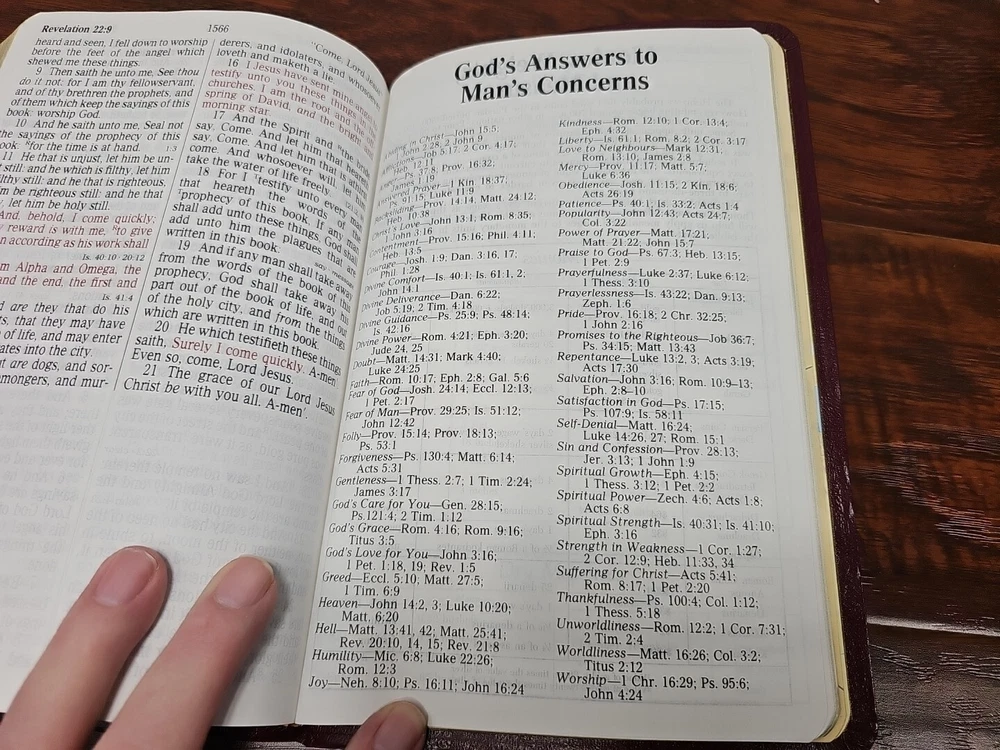 Revelation 22:9
1566
heard and seen, I fell down to worship
before the feet of the angel which
shewed me these things.
9 Then saith he unto me, See thou
do it not: for I am thy fellowservant,
and of thy brethren the prophets, and
of them which keep the sayings of this
book: worship God.
10 And he saith unto me, Seal not
the sayings of the prophecy of this
book: for the time is at hand.
1:3
11 He that is unjust, let him be un-
still: and he which is filthy, let him
filthy still: and he that is righteous,
him be righteous still: and he that
let him be holy still.
And, behold, I come quickly;
reward is with me, to give
according as his work shall
Is. 40:10 20:12
am Alpha and Omega, the
and the end, the first and
Is. 41:4
are they that do his
that they may have
of life, and may enter
gates into the city.
are dogs, and sor-
and mur-
derers, and idolaters, and whosoever
loveth and maketh a lie.
"Come, Lord Jesus
16 I Jesus have sent mine
testify unto you these things in
churches. I am the root and the
spring of David, and the bright
morning star.
17 And the Spirit and the
say, Come. And let him that
say, Come. And let him that is
come. And whosoever will, let
take the water of life freely.
18 For I testify unto every man
that heareth the words of the
prophecy of this book, If any man
shall add unto these things, God shall
add unto him the plagues that are
written in this book:
19 And if any man shall take away
from the words of the book of this
prophecy, God shall take away his
part out of the book of life, and out
of the holy city, and from the things
which are written in this book.
20 He which testifieth these things
saith, Surely I come quickly. A-men.
Even so, come, Lord Jesus.
21 The grace of our Lord Jesus
Christ be with you all. A-men.
God's Answers to
Man's Concerns
Christ—John 15:5;
2:28; 2 John 9
Job 5:17; 2 Cor. 4:17;
Heb. 12:11
Ps. 37:8; Prov. 16:32;
James 1:19
Prayer—1 Kin 18:37;
Ps. 91:15; Luke 11:9
Backsliding—Prov. 14:14; Matt. 24:12;
Heb. 10:38
Christ's Love—John 13:1; Rom. 8:35;
1 John 3:16
Contentment—Prov. 15:16; Phil. 4:11;
Heb. 13:5
Courage—Josh. 1:9; Dan. 3:16, 17;
Phil. 1:28
Divine Comfort—Is. 40:1; Is. 61:1, 2;
John 14:1
Divine Deliverance—Dan. 6:22;
Job 5:19; 2 Tim. 4:18
Divine Guidance—Ps. 25:9; Ps. 48:14;
Is. 42:16
Divine Power—Rom. 4:21; Eph. 3:20;
Jude 24, 25
Doubt—Matt. 14:31; Mark 4:40;
Luke 24:25
Faith—Rom. 10:17; Eph. 2:8; Gal. 5:6
Fear of God—Josh. 24:14; Eccl. 12:13;
1 Pet. 2:17
Fear of Man—Prov. 29:25; Is. 51:12;
John 12:42
Folly—Prov. 15:14; Prov. 18:13;
Ps. 53:1
Forgiveness—Ps. 130:4; Matt. 6:14;
Acts 5:31
Gentleness—1 Thess. 2:7; 1 Tim. 2:24;
James 3:17
God's Care for You—Gen. 28:15;
Ps.121:4; 2 Tim. 1:12
God's Grace—Rom. 4:16; Rom. 9:16;
Titus 3:5
God's Love for You—John 3:16;
1 Pet. 1:18, 19; Rev. 1:5
Greed—Eccl. 5:10; Matt. 27:5;
1 Tim. 6:9
Heaven—John 14:2, 3; Luke 10:20;
Matt. 6:20
Hell—Matt. 13:41, 42; Matt. 25:41;
Rev. 20:10, 14, 15; Rev. 21:8
Humility—Mic. 6:8; Luke 22:26;
Rom. 12:3
Joy—Neh. 8:10; Ps. 16:11; John 16:24
Kindness—Rom. 12:10; 1 Cor. 13:4;
Eph. 4:32
Liberty—Is. 61:1; Rom. 8:2; 2 Cor. 3:17
Love to Neighbours—Mark 12:31,
Rom. 13:10; James 2:8
Mercy—Prov. 11:17; Matt. 5:7;
Luke 6:36
Obedience—Josh. 11:15; 2 Kin. 18:6;
Acts 26:19
Patience—Ps. 40:1; Is. 33:2; Acts 1:4
Popularity—John 12:43; Acts 24:7;
Col. 3:22
Power of Prayer—Matt. 17:21;
Matt. 21:22; John 15:7
Praise to God—Ps. 67:3; Heb. 13:15;
1 Pet. 2:9
Prayerfulness—Luke 2:37; Luke 6:12;
1 Thess. 3:10
Prayerlessness—Is. 43:22; Dan. 9:13;
Zeph. 1:6
Pride—Prov. 16:18; 2 Chr. 32:25;
1 John 2:16
Promises to the Righteous—Job 36:7;
Ps. 34:15; Matt. 13:43
Repentance—Luke 13:2, 3; Acts 3:19;
Acts 17:30
Salvation—John 3:16; Rom. 10:9–13;
Eph. 2:8–10
Satisfaction in God—Ps. 17:15;
Ps. 107:9; Is. 58:11
Self-Denial—Matt. 16:24;
Luke 14:26, 27; Rom. 15:1
Sin and Confession—Prov. 28:13;
Jer. 3:13; 1 John 1:9
Spiritual Growth—Eph. 4:15;
1 Thess. 3:12; 1 Pet. 2:2
Spiritual Power—Zech. 4:6; Acts 1:8;
Acts 6:8
Spiritual Strength—Is. 40:31; Is. 41:10;
Eph. 3:16
Strength in Weakness—1 Cor. 1:27;
2 Cor. 12:9; Heb. 11:33, 34
Suffering for Christ—Acts 5:41;
Rom. 8:17; 1 Pet. 2:20
Thankfulness—Ps. 100:4; Col. 1:12;
1 Thess. 5:18
Unworldliness—Rom. 12:2; 1 Cor. 7:31;
2 Tim. 2:4
Worldliness—Matt. 16:26; Col. 3:2;
Titus 2:12
Worship—1 Chr. 16:29; Ps. 95:6;
John 4:24